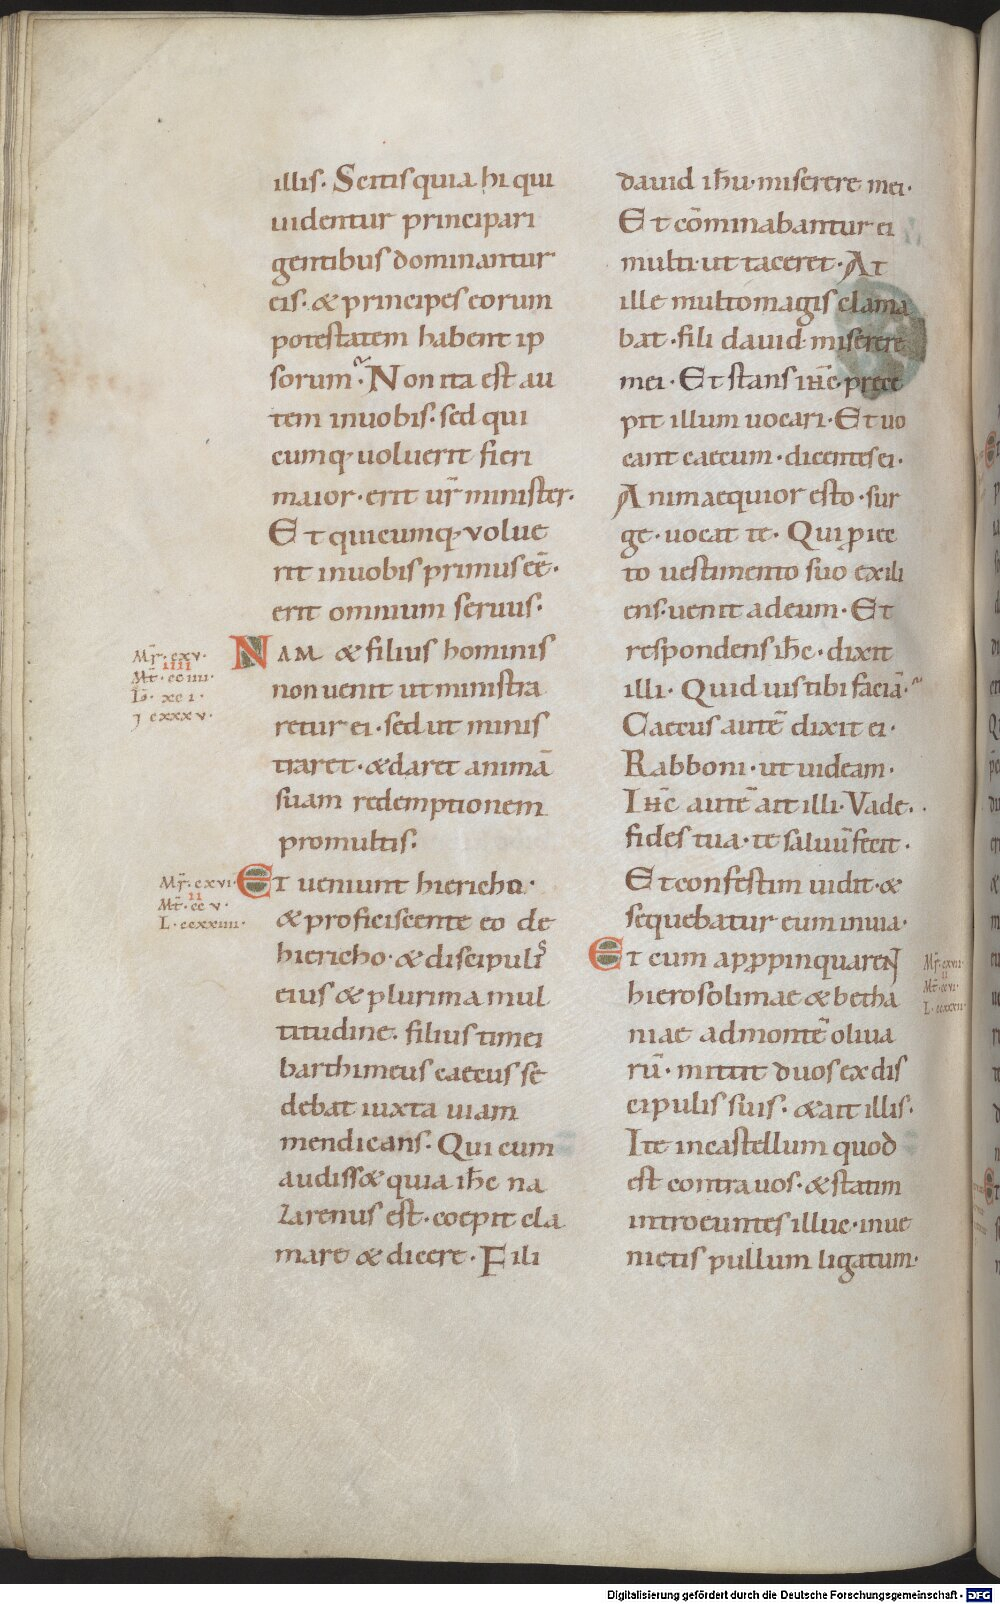 illis· Scitis quia hi qui
uidentur principari
gentibus dominantur
eis· & principes eorum
potestatem habent ip
sorum· Non ita est au
tem inuobis· sed qui
cumq· uoluerit fieri
maior· erit ur̄ minister·
Et quicumq· volue
rit inuobis primus eē·
erit omnium seruus·
Mr̄· cxv·
IIII
Mt̄· cciiii·
L̄· xci·
J cxxxv·
NAM & filius hominis
non uenit ut ministra
retur ei· sed ut minis
traret· & daret animā
suam redemptionem
promultis·
Mr̄· cxvi·
II
Mt̄· ccv·
L· ccxxiiii·
ET ueniunt hiericho·
& proficiscente eo de
hiericho· & discipulis
eius & plurima mul
titudine· filius timei
barthimeus caecus se
debat iuxta uiam
mendicans· Qui cum
audiss& quia ih̄c na
zarenus est· coepit cla
mare & dicere· Fili
dauid ih̄u· miserere mei·
Et cōminabantur ei
multi· ut taceret· At
ille multomagis clama
bat· fili dauid miserere
mei· Et stans ih̄c prece
pit illum uocari· Et uo
cant caecum· dicentes ei·
Animaequior esto· sur
ge· uocat te· Qui ꝓiec
to uestimento suo exili
ens· uenit adeum· Et
respondens ih̄c· dixit
illi· Quid uis tibi faciā·
Caecus autē dixit ei·
Rabboni· ut uideam·
Ih̄c autē ait illi· Vade·
fides tua· te saluū fecit·
Et confestim uidit· &
sequebatur eum inuia·
ET cum apꝓpinquarent
Mr̄· cxvii·
II
Mt̄· ccvi·
hierosolimae & betha
niae admontē oliua
rū· mittit duos ex dis
cipulis suis· & ait illis·
Ite incastellum quod
est contra uos· & statim
introeuntes illuc· inue
nietis pullum ligatum·
Digitalisierung gefördert durch die Deutsche Forschungsgemeinschaft - DFG